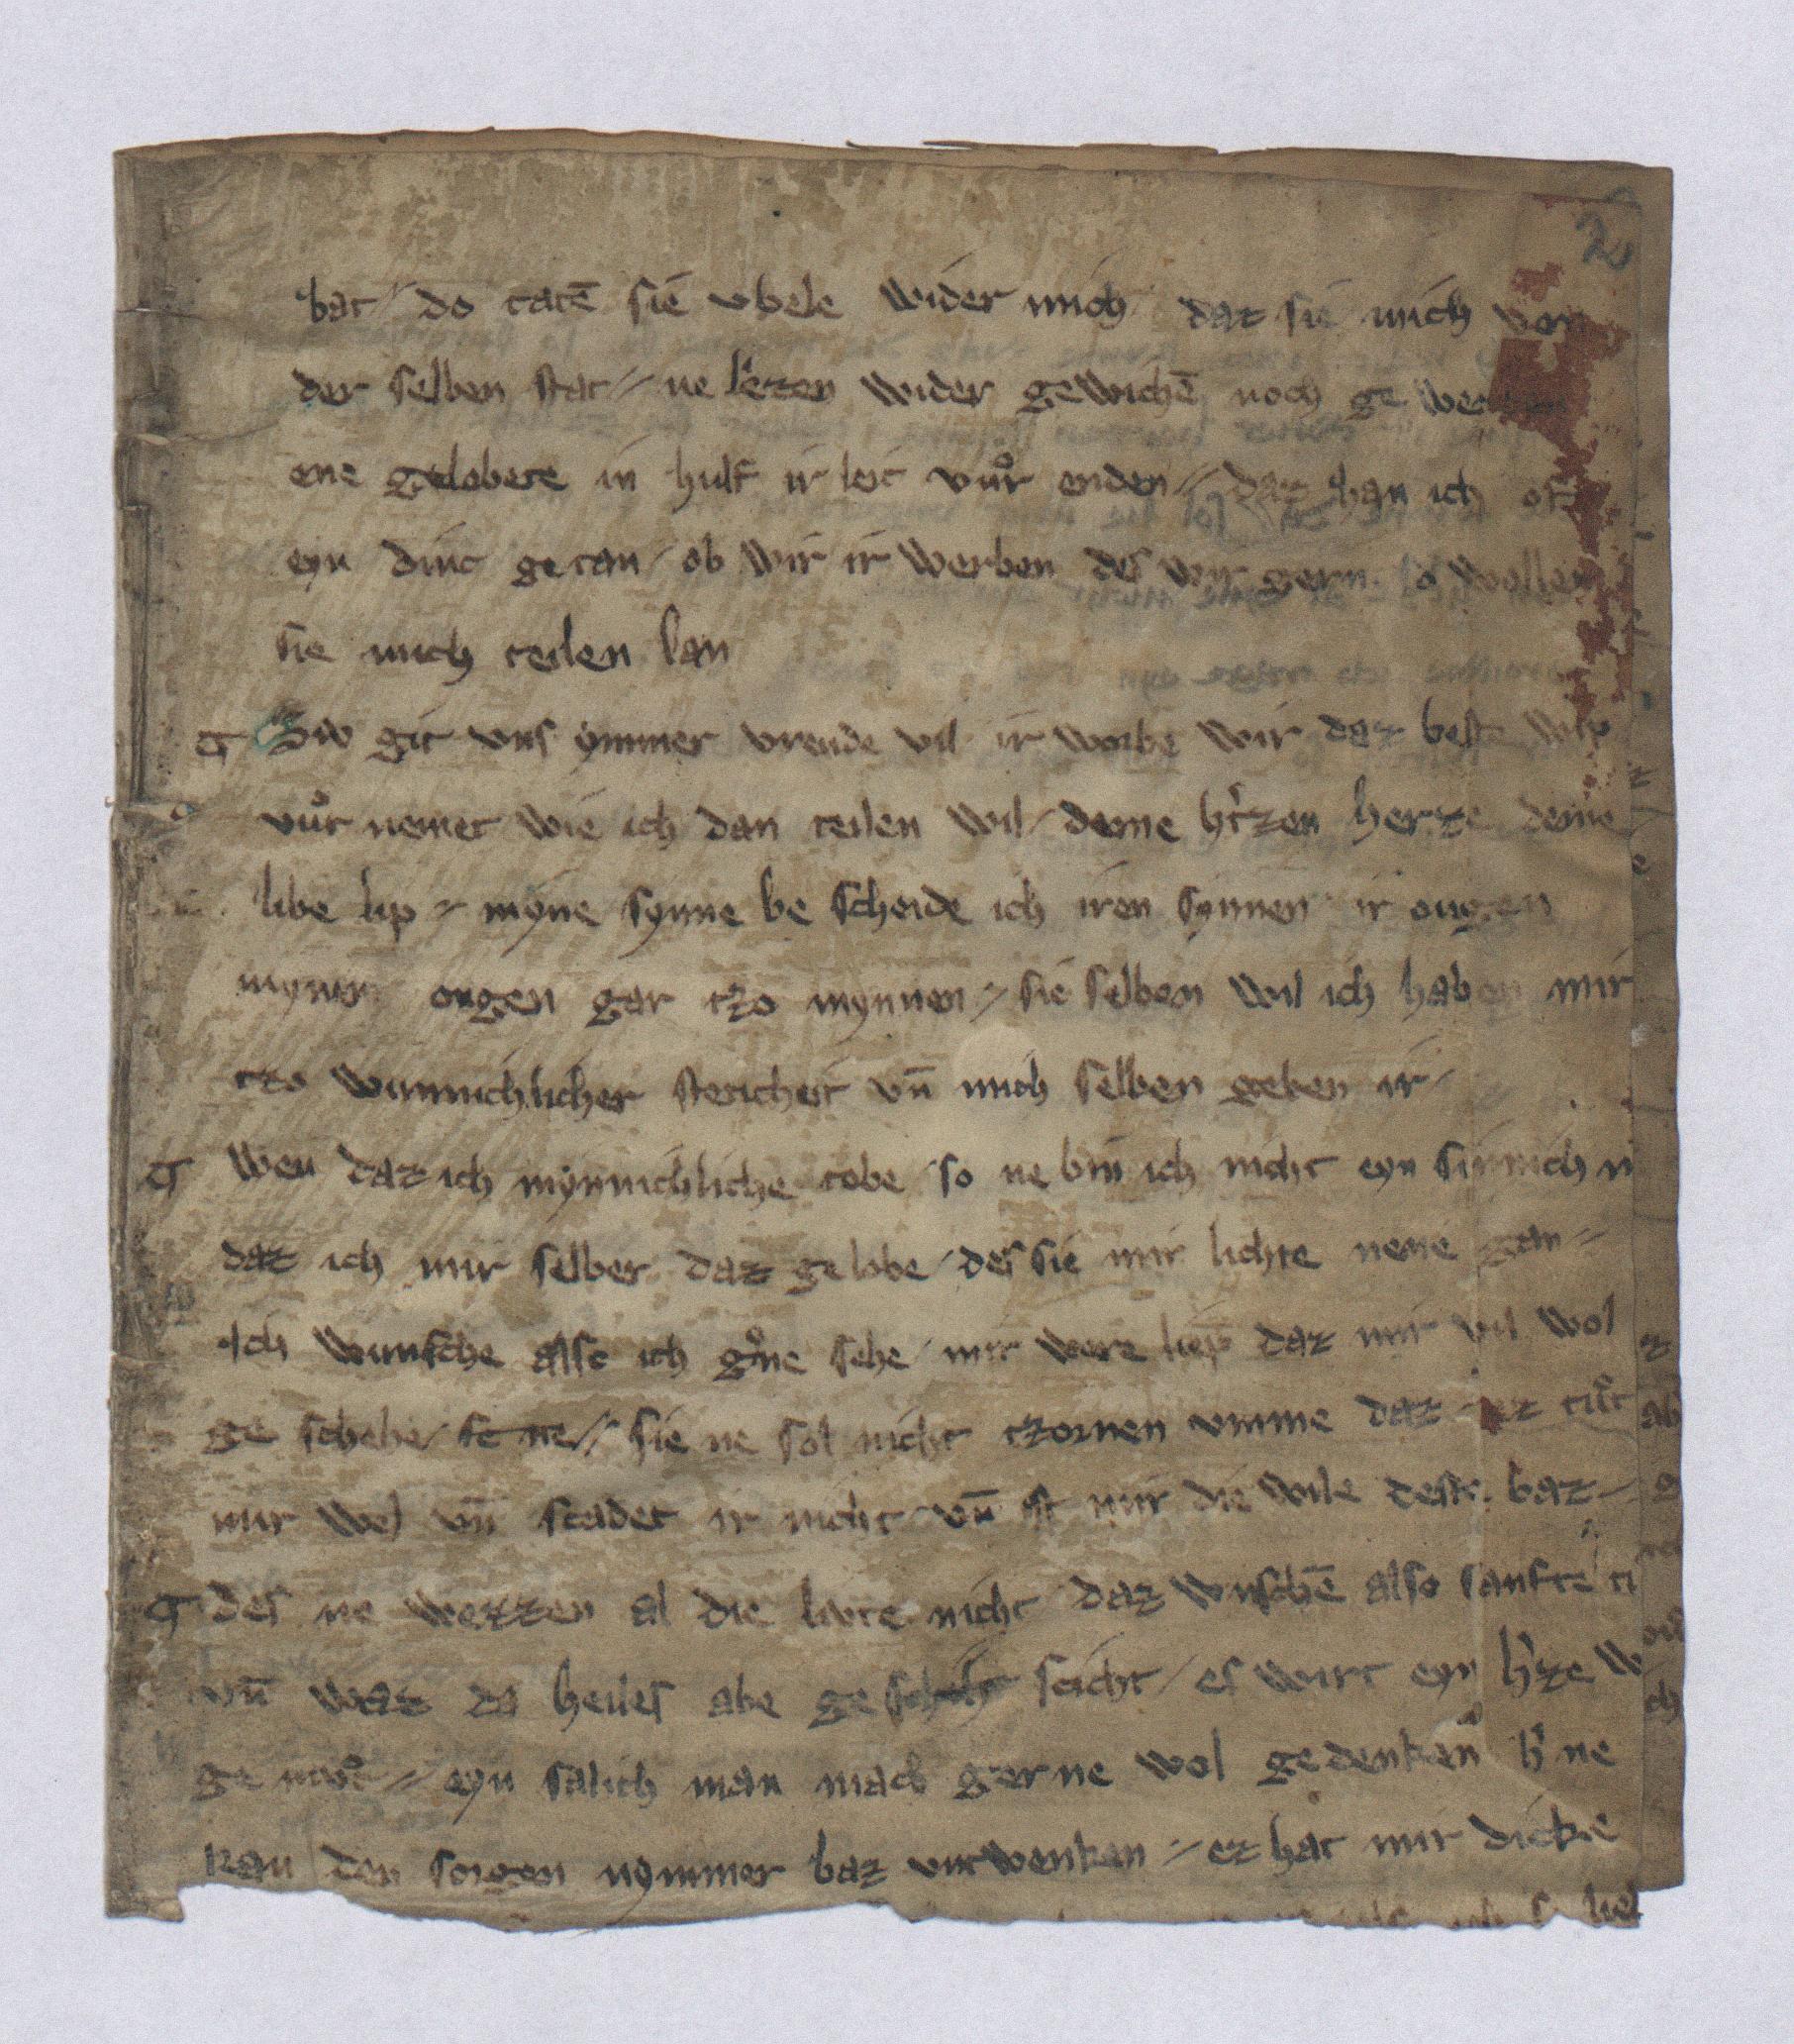 2
bat / do tatē sie vbele wider mich daz sie mich von
der selben stat // ne lezen wider gewichē noch ge
ene gelobete in hulf ir leit vuͦr enden // daz han ich
eyn dinc getan / ob wir ir werben des wir gern so wollen
sie mich teilen lan
Siv git vns ymmer vreude vil ir werbe wir daz beste wip
vuͦr nemet wie ich dan teilen wil / deme h'tzen herze deme
libe lip // myne synne be scheide ich iren synnen ir ougen
mynen ougen gar tzo mynnen // sie selben wil ich haben mir
tzo wunnichlicher steticheit vn̄ mich selben geben ir /
wen daz ich mynnichliche tobe / so ne bin ich nicht eyn sinnich
daz ich mir selber daz gelobe / des sie mir lichte nene gan //
Ich wunsche alse ich g'ne sehe / mir were liep daz mir vil wol
ge schehe // sie ne sol nicht tzornen vmme daz ez
mir wol vn̄ scadet ir nicht vn̄ ist mir die wile deste baz //
des ne wezzen al die livte nicht daz wnschē also sanfte
vn̄ waz da heiles abe geschicht scicht / es wirt eyn h'ze
ge muͦt // eyn salich man mach gerne wol gedenken h' ne
kan den sorgen nymmer baz vntwenken // ez hat mir dicke